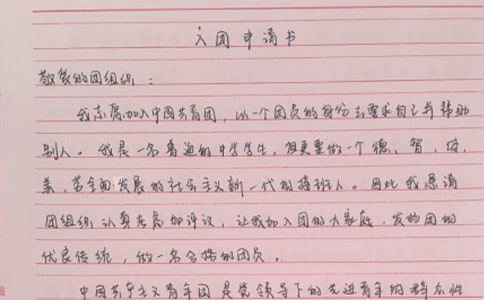 入团申请书
敬爱的团组织：
我志愿加入中国共青团，以一个团员的身份去要求自己并帮助
别人。我是一名普通的中学学生，但更要做一个德、智、体、
美、劳全面发展的社会主义新一代的接班人。因此我恳请
团组织认真考虑加评议，让我加入团的大家庭，发扬团的
优良传统，做一名合格的团员。
中国共产主义青年团是党领导下的先进青年的群众性